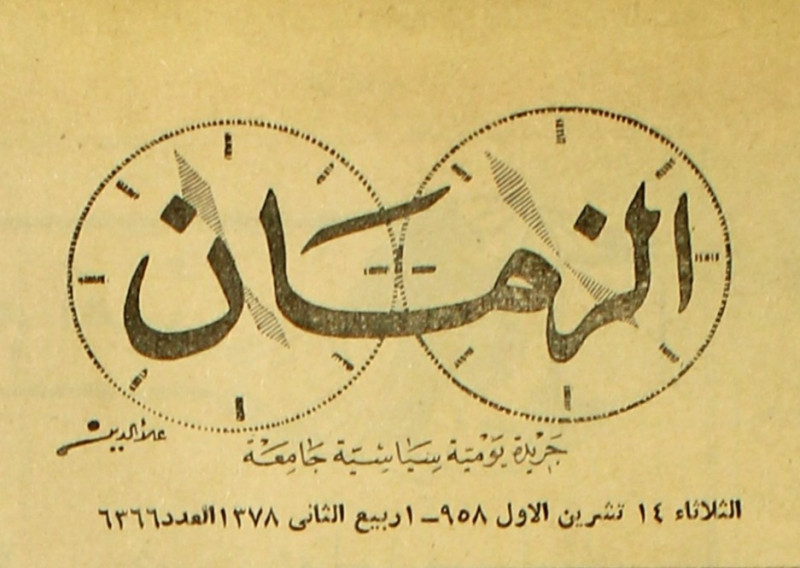 الزمان
علاء الدين
جريدة يومية سياسية جامعة
الثلاثاء ١٤ تشرين الاول ٩٥٨ ـ ١ ربيع الثانى ١٣٧٨ العدد ٦٣٦٦